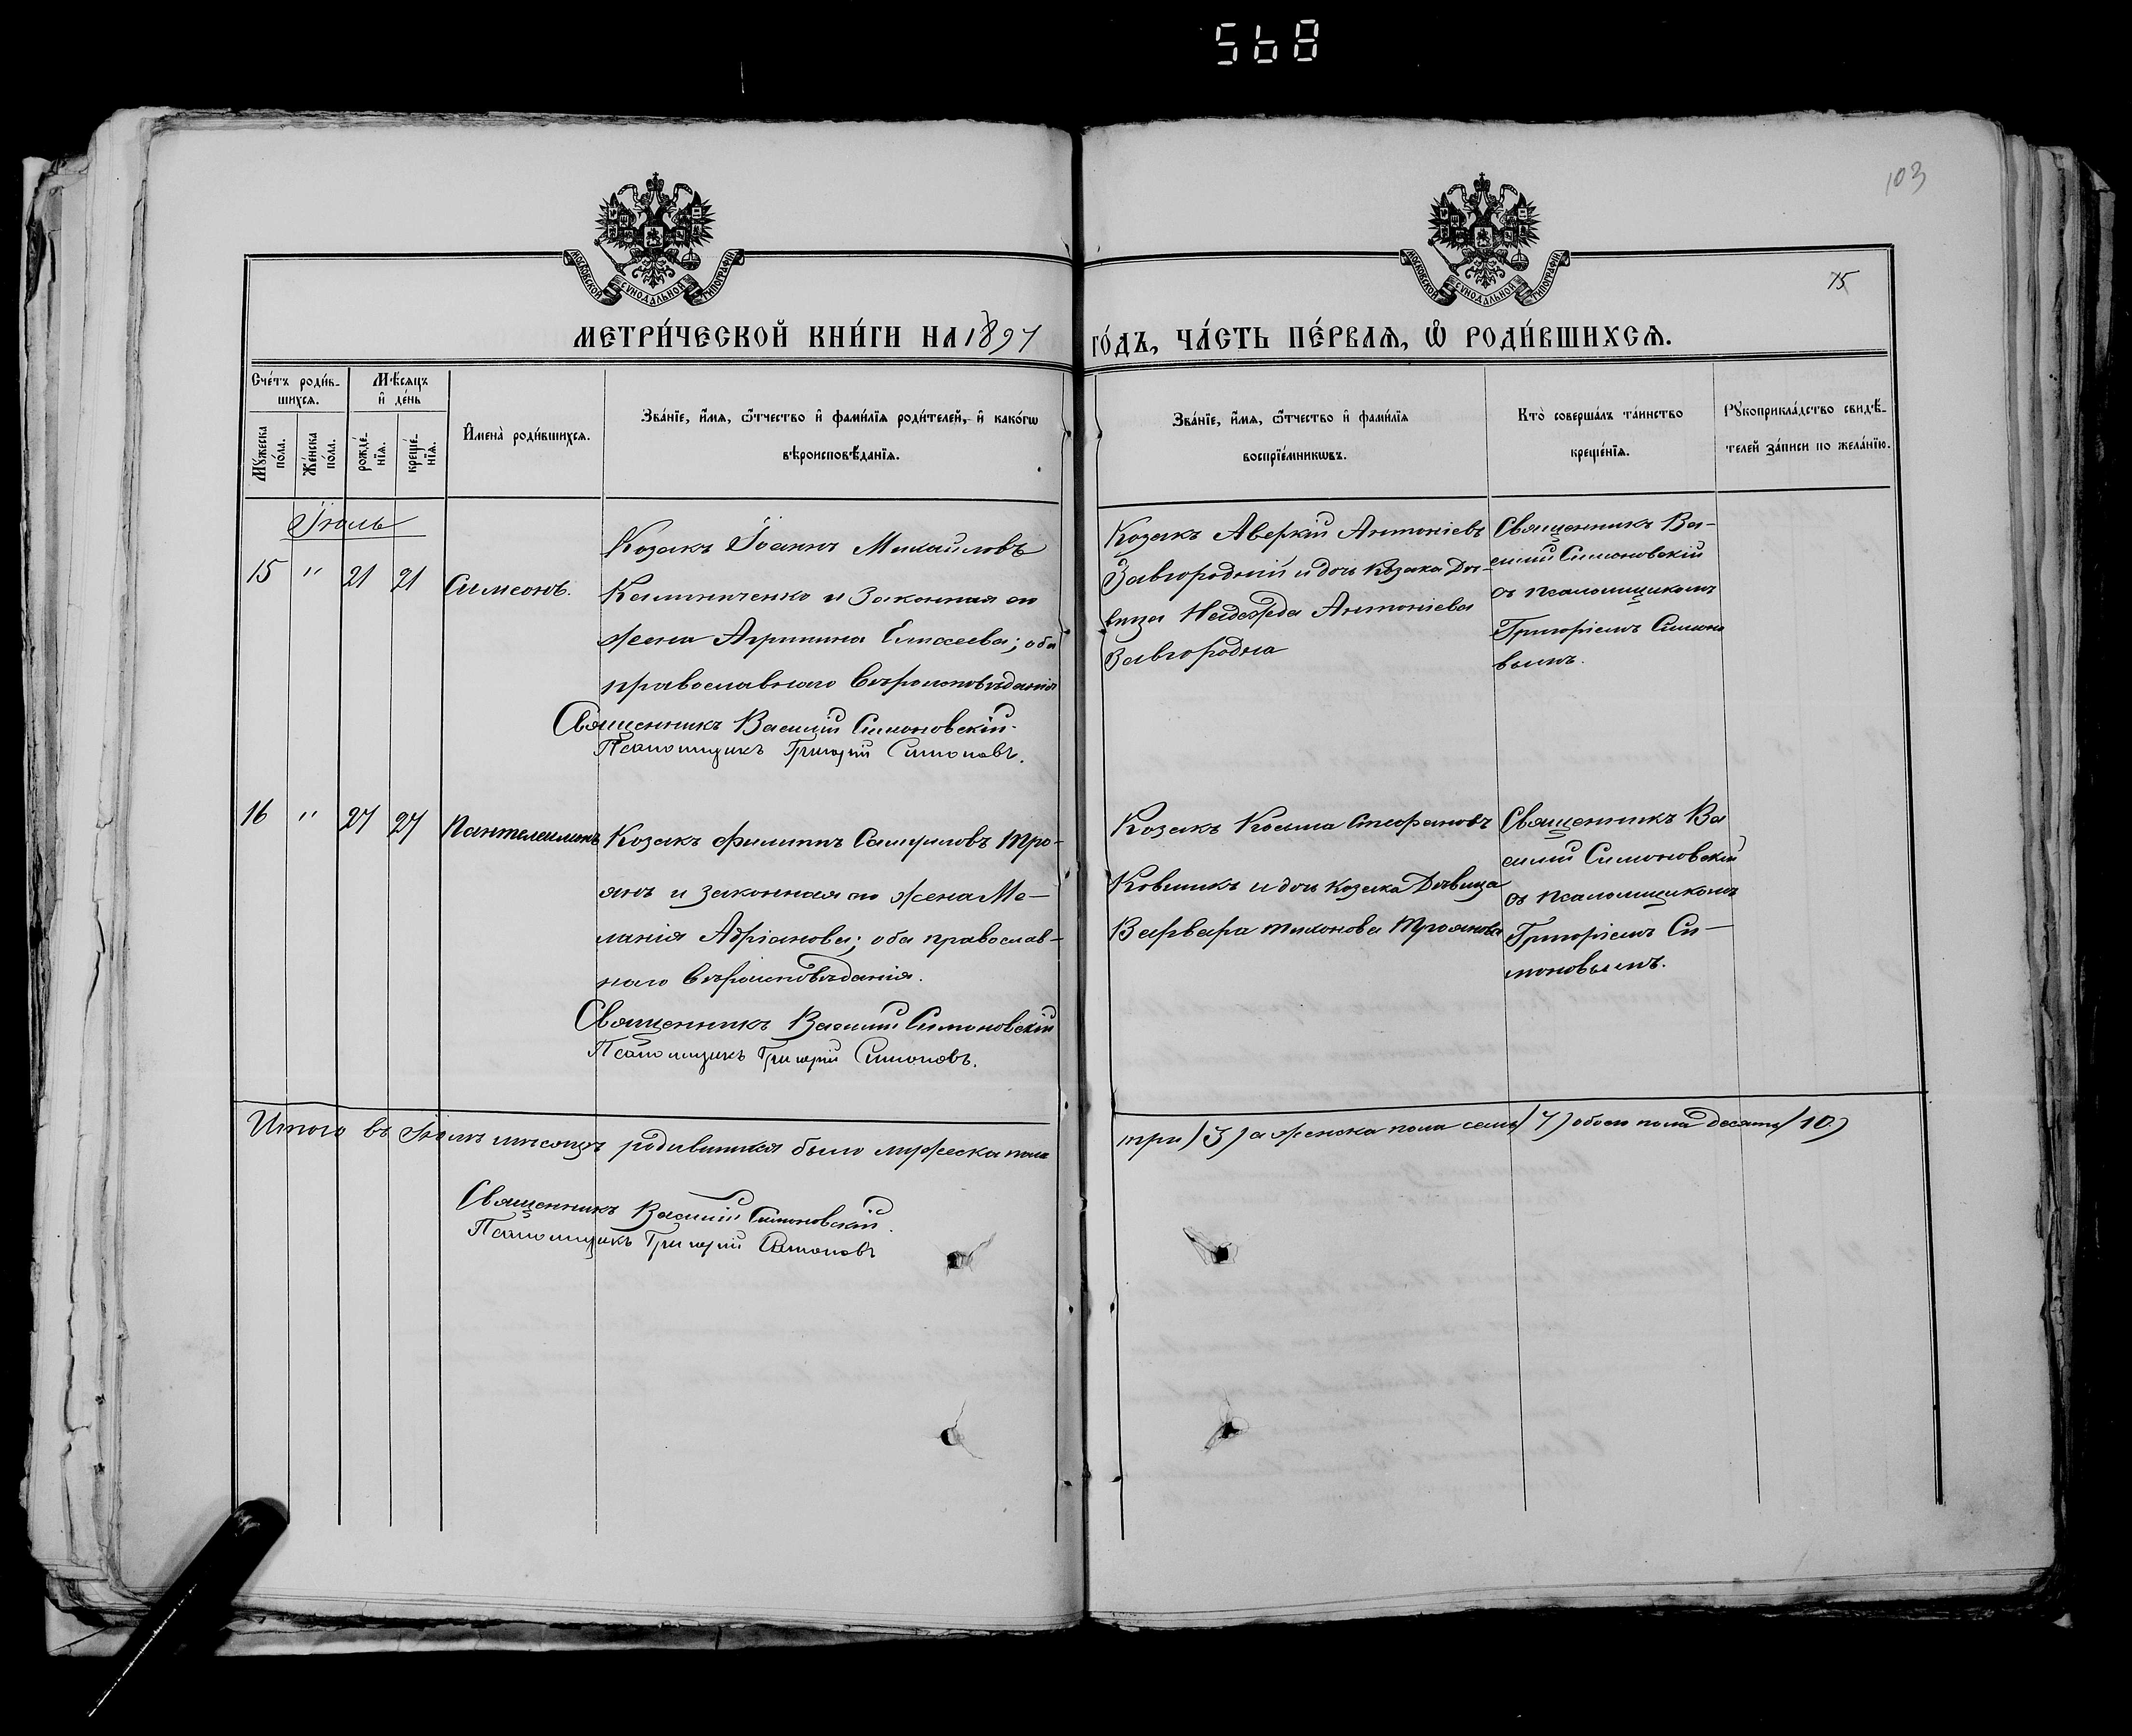 568
103
75
МОСКОВСКОЙ СѴНОДАЛЬНОЙ ТИПОГРАФІИ
МОСКОВСКОЙ СѴНОДАЛЬНОЙ ТИПОГРАФІИ
МЕТРИ́ЧЕСКОЙ КНИ́ГИ НА 1897 ГО́ДЪ, ЧА́СТЬ ПЕ́РВАѦ, Ѡ҆ РОДИ́ВШИХСѦ.
Сче́тъ роди́в-
шихсѧ.
Мꙋ́жеска
по́ла.
Же́нска
по́ла.
Мѣ́сѧцъ
и҆ де́нь
рожде́-
нїѧ.
креще́-
нїѧ.
И҆мена̀ роди́вшихсѧ.
Зва́нїе, и҆́мѧ, ѻ҆́тчество и҆ фами́лїѧ роди́телей, и҆ како́гѡ
вѣроисповѣ́данїѧ.
Зва́нїе, и҆́мѧ, ѻ҆́тчество и҆ фами́лїѧ
воспрїе́мникѡвъ.
Кто̀ соверша́лъ та́инство
креще́нїѧ.
Рꙋкоприкла́дство свидѣ́-
телей за́писи по жела́нїю.
Іюль
15 " 21 21 Симеонъ.
Козакъ Іоаннъ Михаиловъ
Калиниченко и законная его
жена Агрипина Елисеева; оба
православнаго вѣроисповѣданія
Священникъ Василій Симоновскій.
Псаломщикъ Григорій Симоновъ.
Козакъ Аверкій Антоніевъ
Завгородній и дочь козака Дѣ-
вица Надежда Антоніева
Завгородня
Священникъ Ва-
силій Симоновскій
съ псаломщикомъ
Григоріемъ Симоно
вымъ.
16 " 27 27 Пантелеимонъ
Козакъ Филиппъ Самуиловъ Тро-
янъ и законная его жена Ме-
ланія Адріанова; оба православ-
наго вѣроисповѣданія.
Священникъ Василій Симоновскій
Псаломщикъ Григорій Симоновъ.
Козакъ Косьма Стефановъ
Ковшикъ и дочь козака Дѣвица
Варвара Тихонова Троянова
Священникъ Ва
силій Симоновскій
съ псаломщикомъ
Григоріемъ Си-
моновымъ.
Итого въ Іюлѣ мѣсяцѣ родившихся было мужеска пола три (3) а женска пола семь (7) обоего пола десять (10)
Священникъ Василій Симоновскій.
Псаломщикъ Григорій Симоновъ